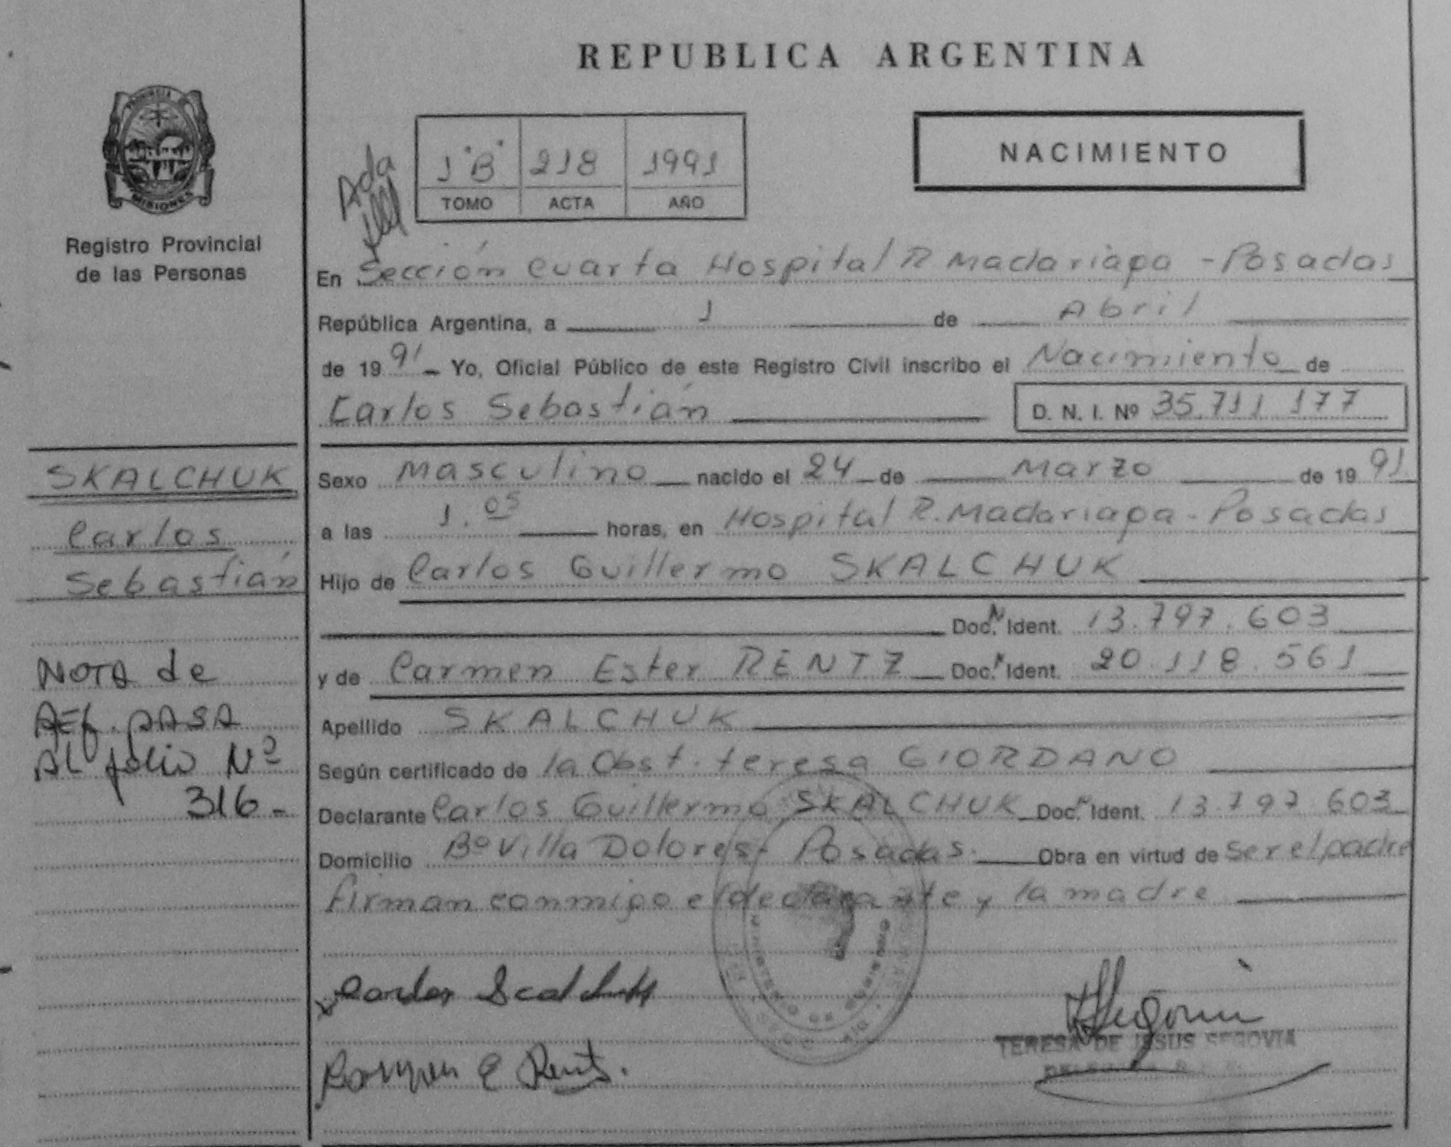 REPUBLICA ARGENTINA
PROVINCIA DE
MISIONES
Registro Provincial
de las Personas
1 "B" 218 1991
TOMO ACTA AÑO
NACIMIENTO
En Sección Cuarta Hospital R. Madariaga - Posadas
República Argentina, a 1 de Abril
de 1991 Yo, Oficial Público de este Registro Civil inscribo el Nacimiento de
Carlos Sebastián D. N. I. Nº 35.711.177
SKALCHUK
Carlos
Sebastián
NOTA de
REf. PASA
AL folio Nº
316-
Sexo Masculino nacido el 24 de Marzo de 1991
a las 1.05 horas, en Hospital R. Madariaga - Posadas
Hijo de Carlos Guillermo SKALCHUK
Doc. Ident. 13.797.603
y de Carmen Ester RENTZ Doc. Ident. 20.118.561
Apellido SKALCHUK
Según certificado de la Obst. teresa GIORDANO
Declarante Carlos Guillermo SKALCHUK Doc. Ident. 13.797.603
Domicilio Bº Villa Dolores - Posadas. Obra en virtud de ser el padre
firman conmigo el declarante y la madre
TERESA DE JESUS SEGOVIA